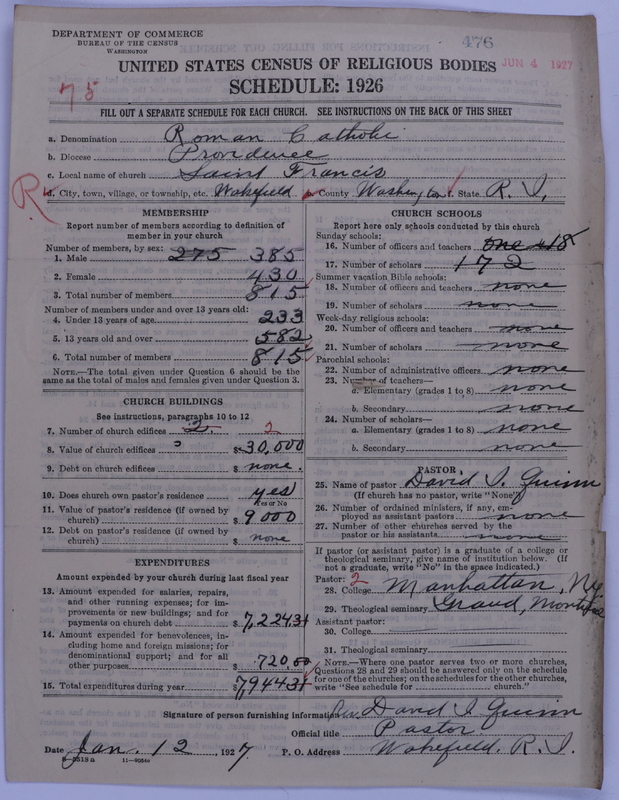 DEPARTMENT OF COMMERCE
BUREAU OF THE CENSUS
WASHINGTON
476
JUN 4 1927
UNITED STATES CENSUS OF RELIGIOUS BODIES
SCHEDULE: 1926
75
FILL OUT A SEPARATE SCHEDULE FOR EACH CHURCH. SEE INSTRUCTIONS ON THE BACK OF THIS SHEET
a. Denomination Roman Catholic
b. Diocese Providence
c. Local name of church Saint Francis
R
d. City, town, village, or township, etc. Wakefield e. County Washington f. State R. I.
MEMBERSHIP
Report number of members according to definition of member in your church
Number of members, by sex:
1. Male 275 385
2. Female 430
3. Total number of members 815
Number of members under and over 13 years old:
4. Under 13 years of age 233
5. 13 years old and over 582
6. Total number of members 815
NOTE.—The total given under Question 6 should be the
same as the total of males and females given under Question 3.
CHURCH BUILDINGS
See instructions, paragraphs 10 to 12
7. Number of church edifices 2. 2
8. Value of church edifices $ 30,000
9. Debt on church edifices $ none.
10. Does church own pastor's residence yes
Yes or No
11. Value of pastor's residence (if owned by
church) $ 9000
12. Debt on pastor's residence (if owned by
church) $ none
EXPENDITURES
Amount expended by your church during last fiscal year
13. Amount expended for salaries, repairs,
and other running expenses; for im-
provements or new buildings; and for
payments on church debt $ 7,224.31
14. Amount expended for benevolences, in-
cluding home and foreign missions; for
denominational support; and for all
other purposes $ 720.00
15. Total expenditures during year $ 7944.31
CHURCH SCHOOLS
Report here only schools conducted by this church
Sunday schools:
16. Number of officers and teachers one + 18
17. Number of scholars 172
Summer vacation Bible schools:
18. Number of officers and teachers none
19. Number of scholars none
Week-day religious schools:
20. Number of officers and teachers none
21. Number of scholars none
Parochial schools:
22. Number of administrative officers none
23. Number of teachers—
a. Elementary (grades 1 to 8) none
b. Secondary none
24. Number of scholars—
a. Elementary (grades 1 to 8) none
b. Secondary none
PASTOR
25. Name of pastor David I. Quinn
(If church has no pastor, write "None")
26. Number of ordained ministers, if any, em-
ployed as assistant pastors none
27. Number of other churches served by the
pastor or his assistants none
If pastor (or assistant pastor) is a graduate of a college or
theological seminary, give name of institution below. (If
not a graduate, write "No" in the space indicated.)
Pastor: 2
28. College Manhattan, Ny
29. Theological seminary Grand, Montreal
Assistant pastor:
30. College
31. Theological seminary
NOTE.—Where one pastor serves two or more churches,
Questions 28 and 29 should be answered only on the schedule
for one of the churches; on the schedules for the other churches,
write "See schedule for church."
Signature of person furnishing information Rev. David I. Quinn
Official title Pastor
Date Jan. 12 1927. P. O. Address Wakefield, R. I.